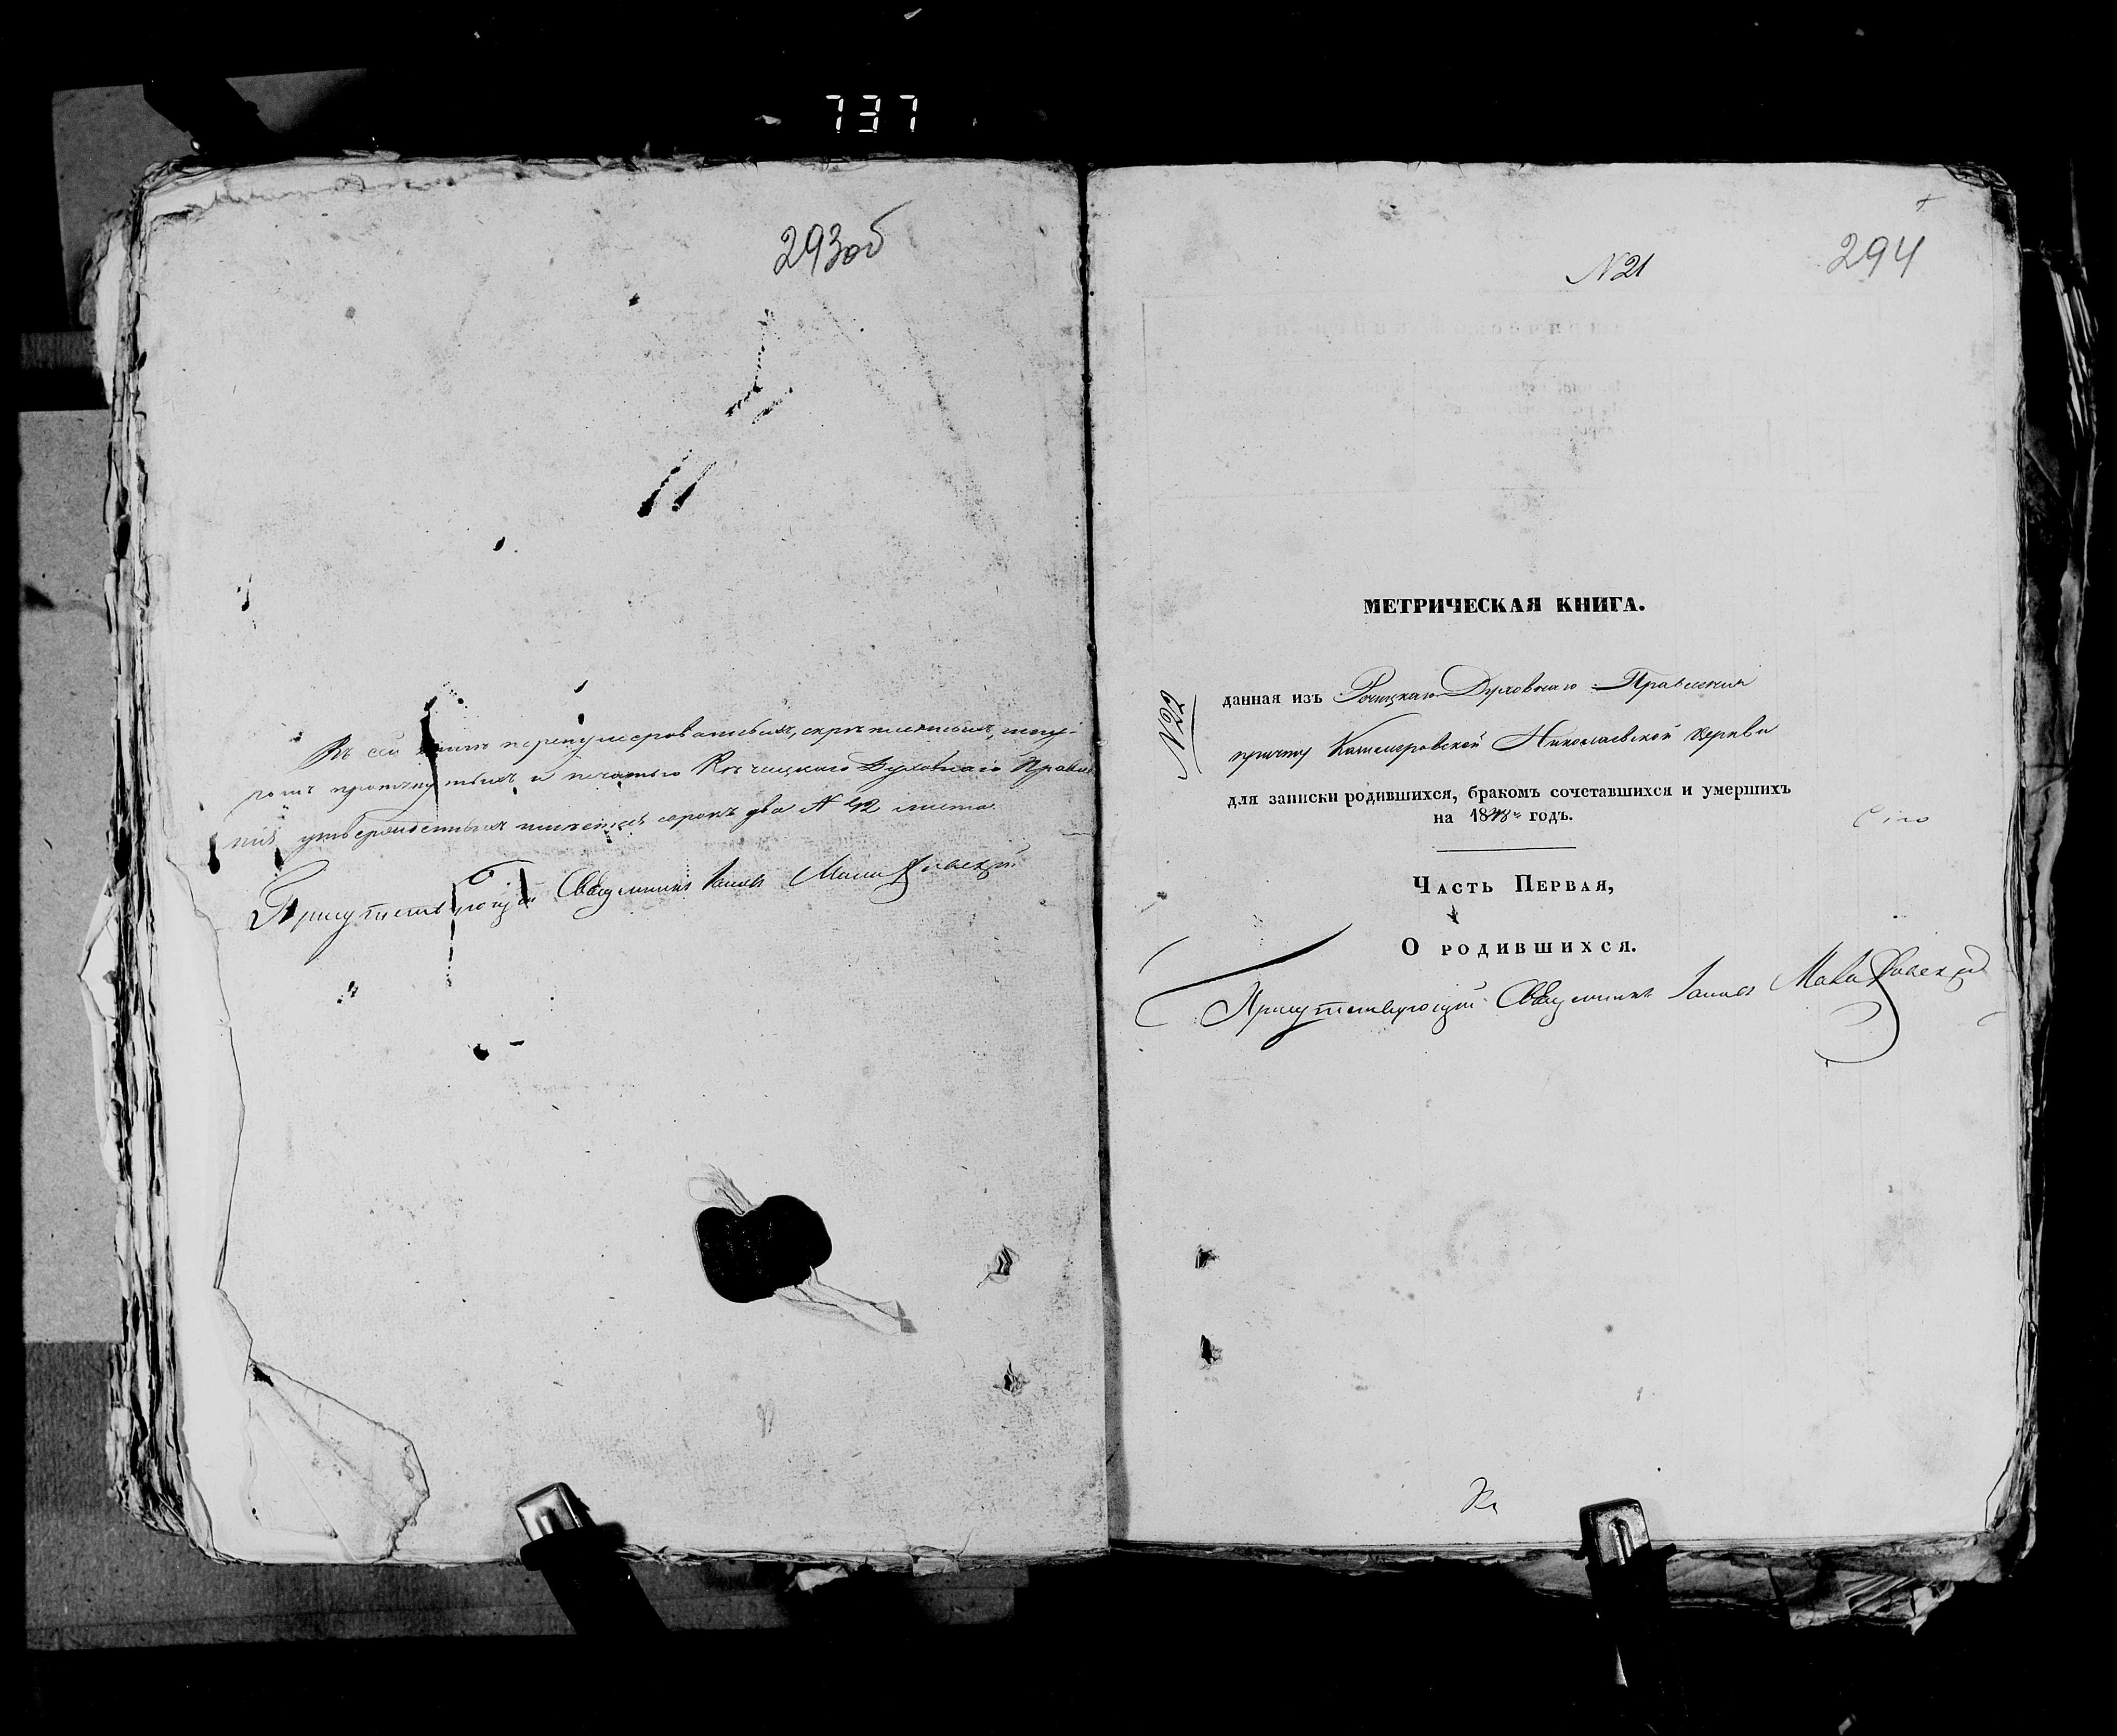 737
293об
Въ сей книгѣ перенумерованныхъ, скрѣпленныхъ, шну-
ромъ протянутыхъ и печатью Рѣчицкаго Духовнаго Правле
нія утвержденныхъ имѣется сорокъ два № 42 листа
Присутствующій Священникъ Іаковъ
№ 21
294
МЕТРИЧЕСКАЯ КНИГА.
№ 22
данная изъ Рѣчицкаго Духовнаго Правленія
причту Николаевской церкви
для записки родившихся, бракомъ сочетавшихся и умершихъ
на 1848й годъ.
Часть Первая,
О родившихся.
Присутствующій Священникъ Іаковъ